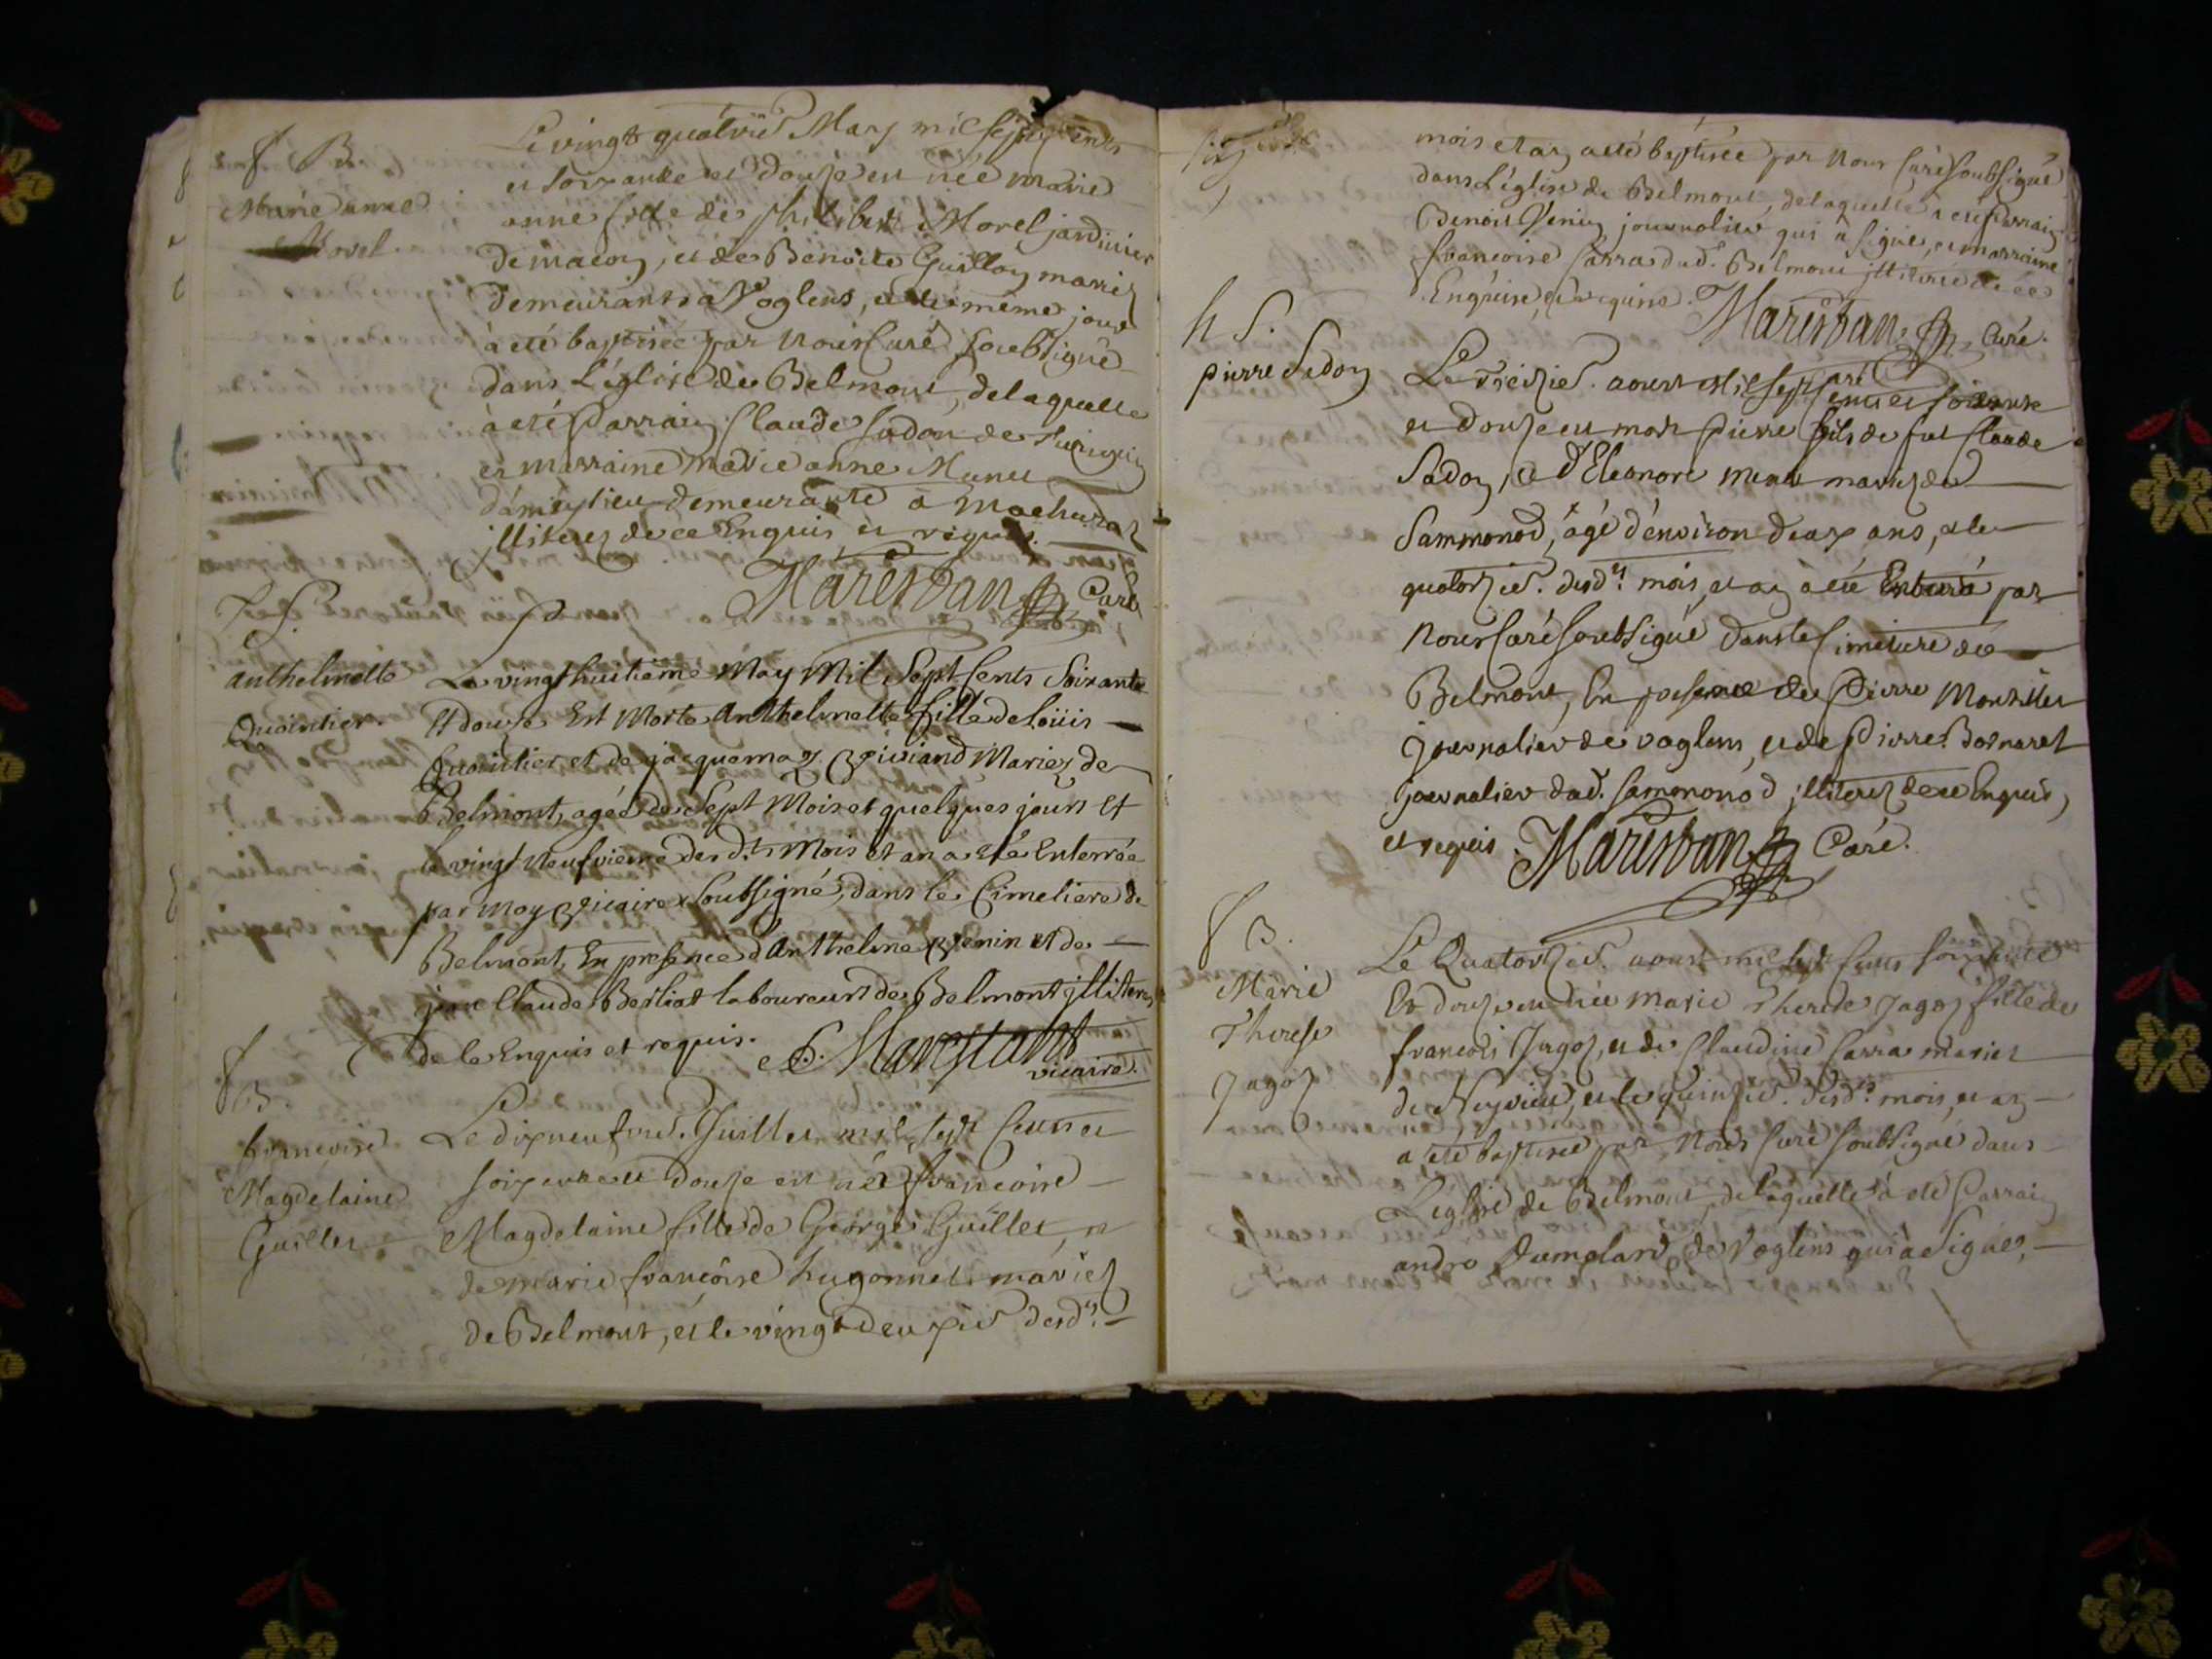 f B.
Marie anne
Morel
Le vingt quatrie Mars mil sept cents
et soixante et douze est née marie
anne fille de philibert Morel jardinier
de macon, et de Benoite Guilloz mariez
demeurants a Voglens, et le même jour
à eté baptisée par nous Curé soubsigné
dans L'église de Belmont, de laquelle
à eté Parrain Claude Sadon de
et marraine marie anne Munet
d'ameyzieu demeurante a Machuraz
jlliterez de ce Enquis et requis.
Marestan Curé
f S.
anthelmette
Quointier.
Le vingt huitieme May Mil Sept Cents Soixante
Et douze Est Morte Anthelmette fille de Loüis
Quointier et de jaquemaz Viviand Mariez de
Belmont, agée de Sept Mois et quelques jours Et
le vingt Neufvieme des d.ts Mois et an a Eté Enterrée
par moy Vicaire Soubsigné, dans le Cimetiere de
Belmont, En presence d'Anthelme Venin et de
jean Claude Berliat laboureurs de Belmont jlliteres
de le Enquis et requis. Marestant
vicaire.
f B.
francoise
Magdelaine
Guillet
Le dixneufvie. Juillet mil sept Cents et
soixante et douze est née francoise
Magdelaine fille de George Guillet, et
de marie françoise hugonnet mariez
de Belmont, et le vingt deuxie desd.ts
mois et an a eté baptisée par nous Curé soubsigné
dans L'église de Belmont, de laquelle a eté parrain
Benoit Venin journalier qui a signé, et marraine
francoise Carra dud. Belmont jlliterée de ce
Enquise, et requise. Marestan Curé.
h S.
pierre Sadon
Le treizie. aoust mil sept cents et soixante
et douze est mort pierre fils de feu Claude
Sadon, et d'Eleonore mariez de
Sammonod, agé d'environ deux ans, et le
quatorzie. desd.ts mois, et an a eté Enterré par
nous Curé soubsigné dans le Cimetiere de
Belmont, En presence de Pierre
journalier de voglens, et de Pierre Bornaret
journalier dud. sammonod jlliterez de ce Enquis,
et requis. Marestan Curé.
f B.
Marie
Therese
Jagoz
Le Quatorzie. aoust mil sept Cents soixante
Et douze est née marie Therese Jagoz fille de
francois Jagoz, et de Claudine Carra mariez
de Neyrieu, et le quinzie. desd.ts mois, et an
a eté baptisée par Nous Curé soubsigné dans
L'église de Belmont, de laquelle à eté Parrain
andre Dumolard de Voglens qui a signé,